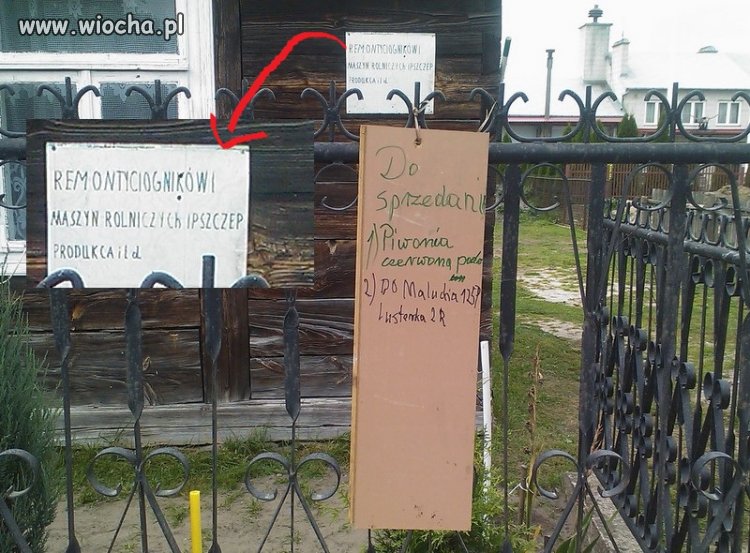 www.wiocha.pl
REMONTYCIOGNIKÓWI
MASZYN ROLNICZYCH IPSZCZEP
PRODUKCA i t d
REMONTYCIOGNIKÓWI
MASZYN ROLNICZYCH IPSZCZEP
PRODUKCA i t d.
Do
sprzedania
1) Piwonia
czerwona
2) DO Malucha 125P
Lusterka 2